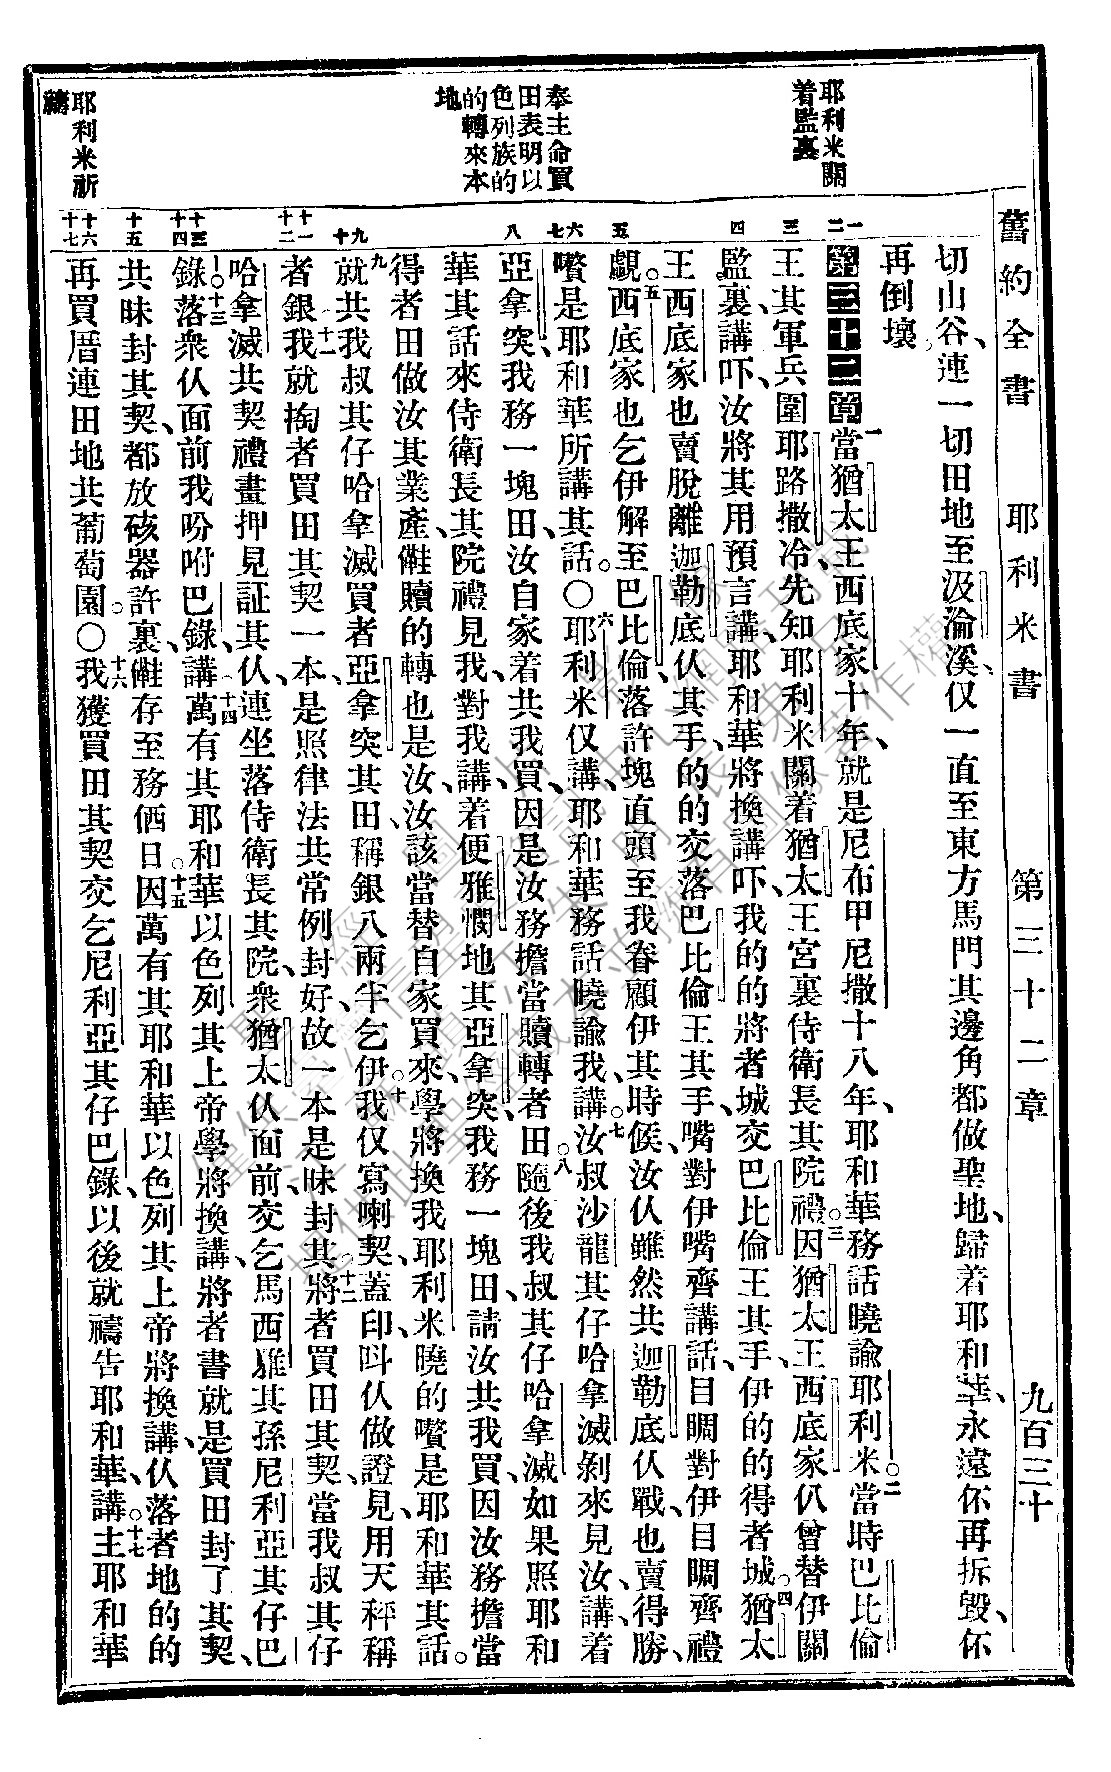 舊約全書 耶利米書 第三十二章 九百三十
耶利米關
着監裏
奉主命買
田表明以
色列族的
的轉來本
地
耶利米祈
禱
一二
三
四
五
六七
八
九十
十一十二
十三十四
十五
十六十七
切山谷、連一切田地至汲淪溪、仅一直至東方馬門其邊角都做聖地、歸着耶和華、永遠伓再拆毀、伓
再倒壞。
第三十二章 一當猶太王西底家十年、就是尼布甲尼撒十八年、耶和華務話曉諭耶利米。二當時巴比倫
王其軍兵圍耶路撒冷、先知耶利米關着猶太王宮裏侍衛長其院禮。三因猶太王西底家仈曾替伊關
監裏、講吓、汝將其用預言講、耶和華將換講吓、我的的將者城交巴比倫王其手、伊的的得者城。四猶太
王西底家也賣脫離迦勒底仈其手、的的交落巴比倫王其手、嘴對伊嘴齊講話、目睭對伊目睭齊禮
覷。五西底家也乞伊解至巴比倫、落許塊直頭至我眷顧伊其時候、汝仈雖然共迦勒底仈戰、也賣得勝、
嚽是耶和華所講其話。〇六耶利米仅講、耶和華務話曉諭我講。七汝叔沙龍其仔哈拿滅剝來見汝、講、着
亞拿突、我務一塊田、汝自家着共我買、因是汝務擔當贖轉者田。八隨後我叔其仔哈拿滅、如果照耶和
華其話來侍衛長其院禮見我、對我講、着便雅憫地其亞拿突、我務一塊田、請汝共我買、因汝務擔當
得者田做汝其業產、㑚贖的轉也是汝、汝該當替自家買來、學將換我耶利米曉的嚽是耶和華其話。
九就共我叔其仔哈拿滅買者亞拿突其田、稱銀八兩半乞伊。十我仅寫喇契、蓋印、呌仈做證見、用天秤稱
者銀。十一我就掏者買田其契、一本是照律法共常例封好、故一本是昧封其。十二將者買田其契、當我叔其仔
哈拿滅共契禮畫押見証其仈、連坐落侍衛長其院衆猶太仈面前、交乞馬西雅其孫尼利亞其仔巴
錄。十三落衆仈面前、我吩咐巴錄講、十四萬有其耶和華以色列其上帝學將換講、將者書就是買田封了其契、
共昧封其契、都放硋器許裏、㑚存至務伵日。十五因萬有其耶和華以色列其上帝將換講、仈落者地的的
再買厝連田地共葡萄園。〇十六我獲買田其契交乞尼利亞其仔巴錄、以後就禱告耶和華講、十七主耶和華